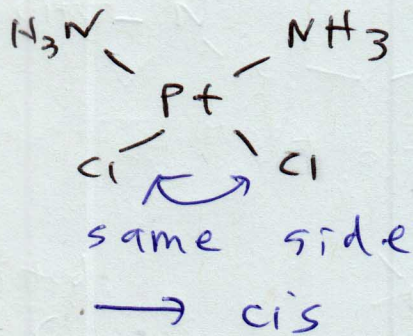 H₃N NH₃
Pt
Cl Cl
same side
→ cis